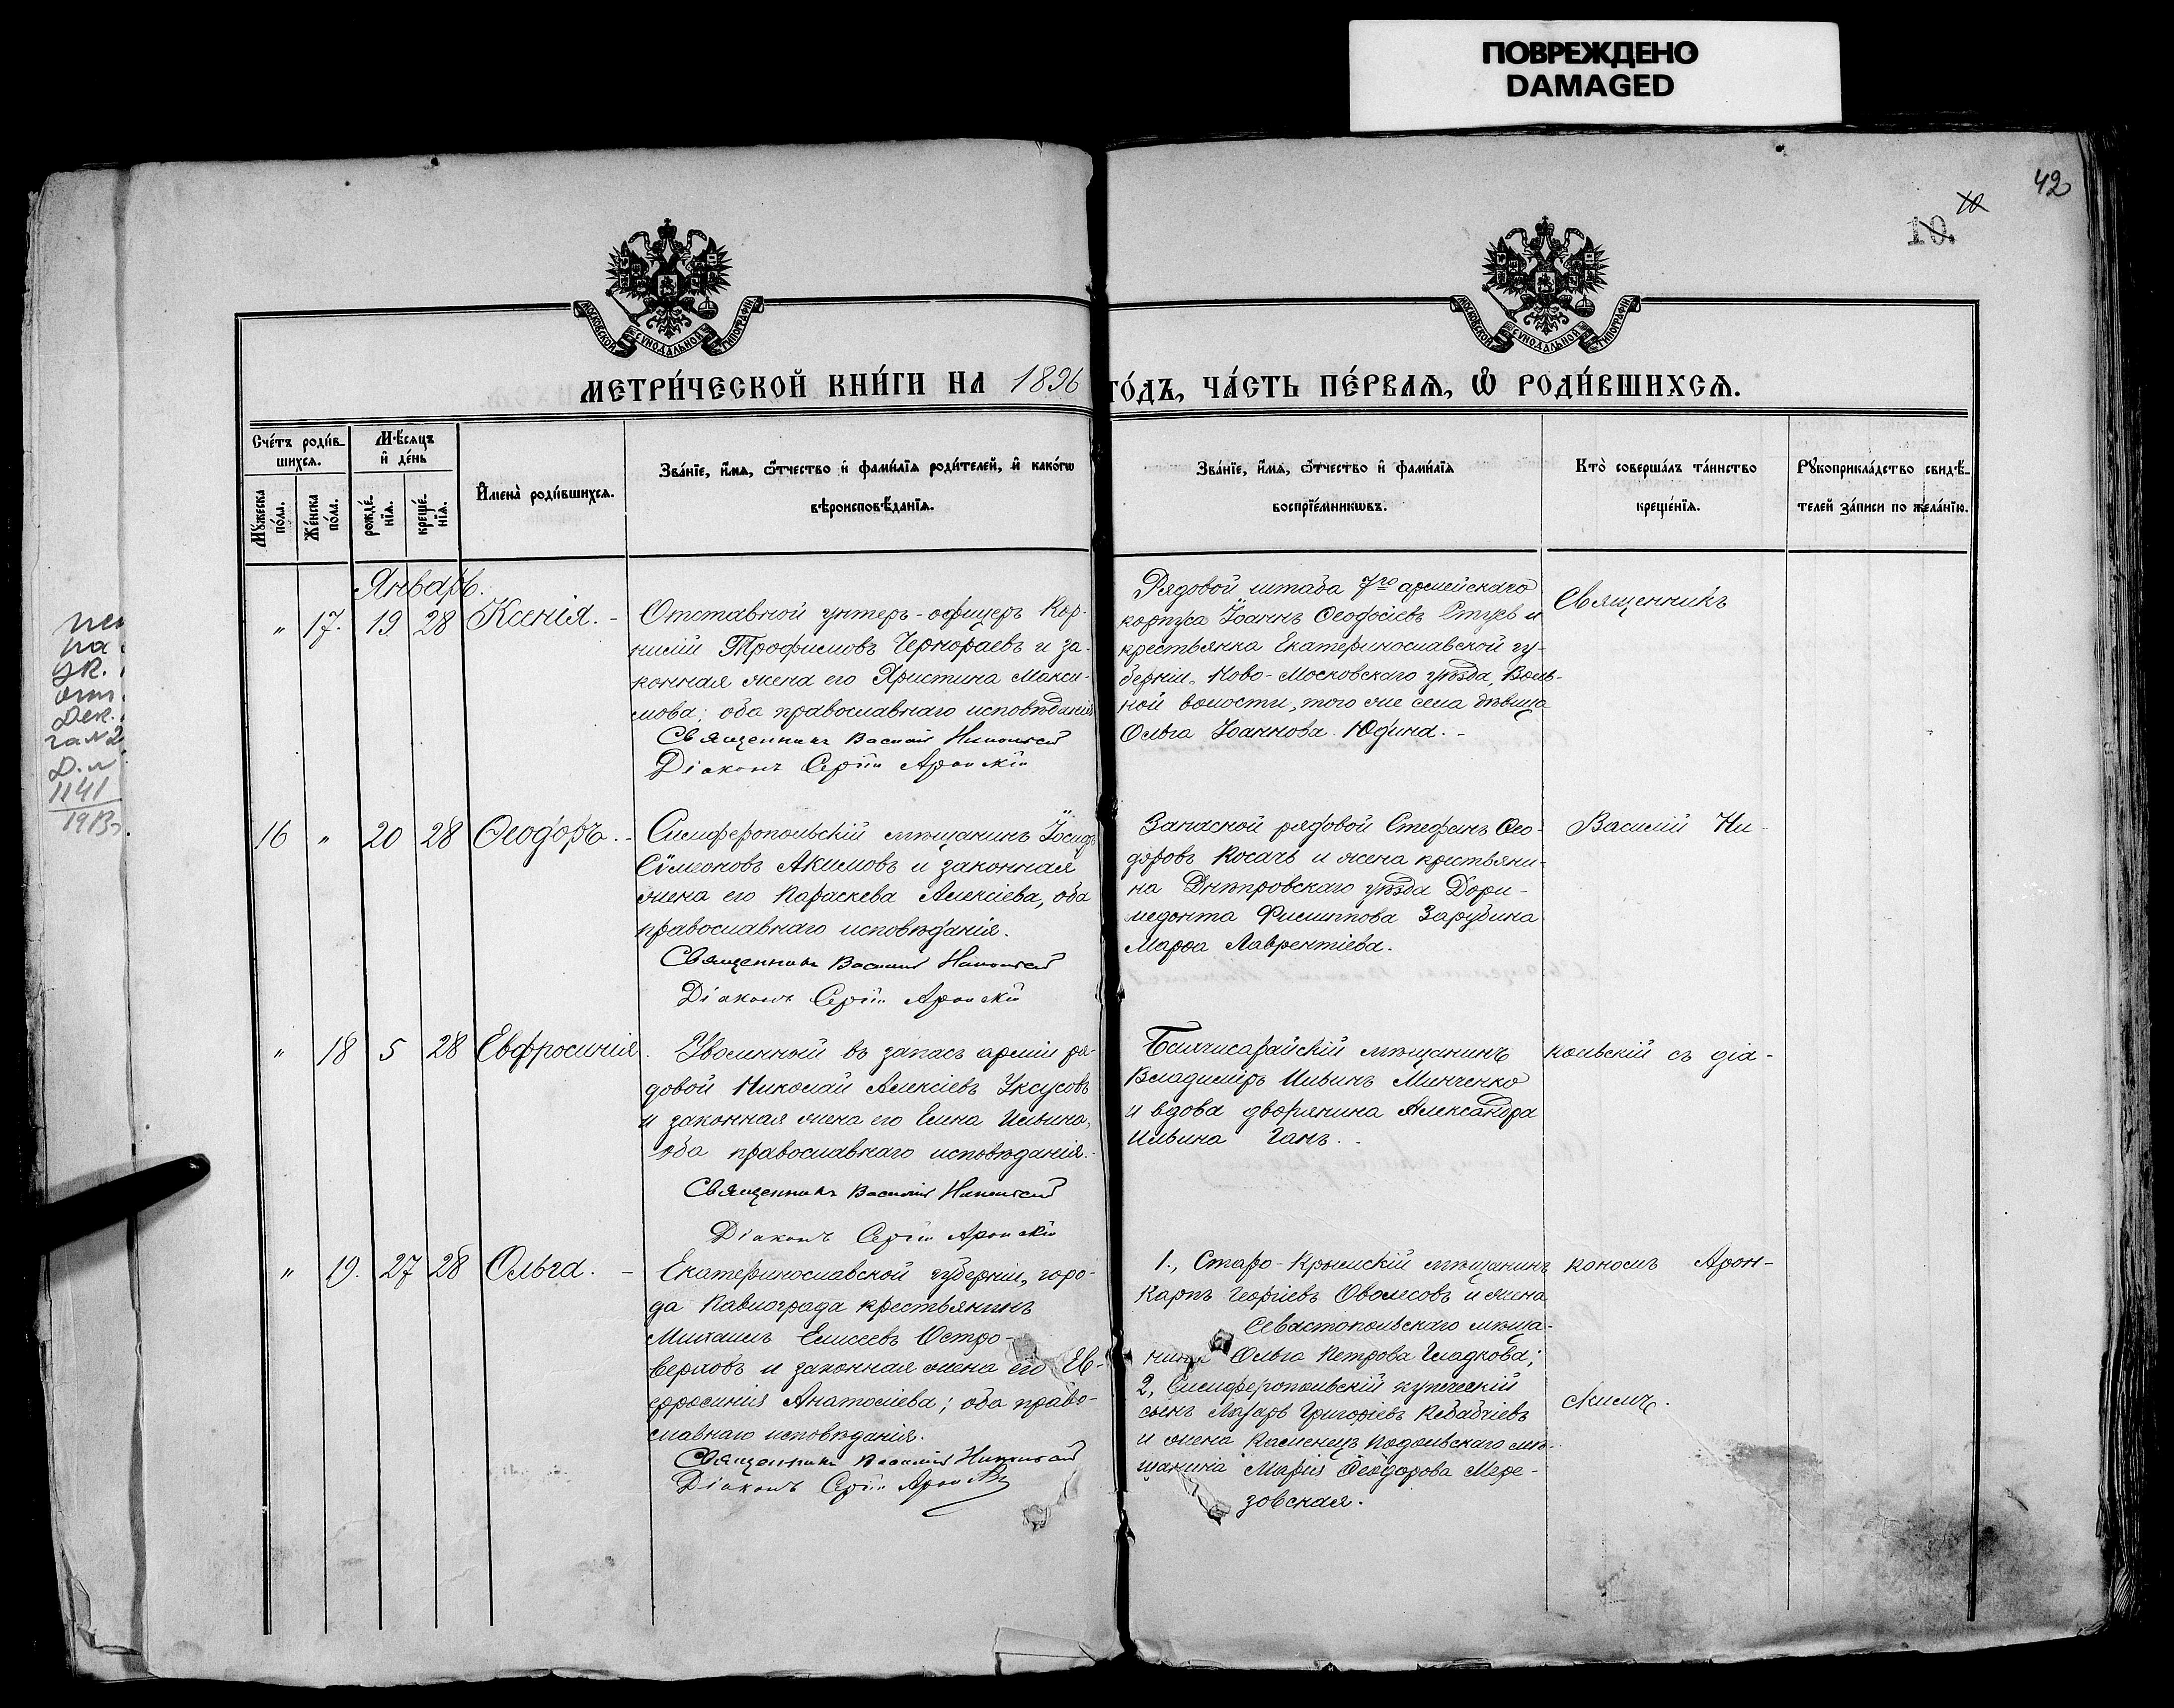 ПОВРЕЖДЕНО
DAMAGED
42
10
10.
МОСКОВСКОЙ СѴНОДАЛЬНОЙ ТИПОГРАФІИ
МОСКОВСКОЙ СѴНОДАЛЬНОЙ ТИПОГРАФІИ
МЕТРИ́ЧЕСКОЙ КНИ́ГИ НА 1896 ГО́ДЪ, ЧА́СТЬ ПЕ́РВАѦ, Ѽ РОДИ́ВШИХСѦ.
Сче́тъ роди́в-
шихсѧ.
Мѣ́сѧцъ
и҆ де́нь
Мꙋ́жеска
по́ла.
Же́нска
по́ла.
рожде́-
нїѧ.
креще́-
нїѧ.
И҆мена̀ роди́вшихсѧ.
Зва́нїе, и҆́мѧ, ѻ҆́тчество и҆ фами́лїѧ роди́телей, и҆ како́гѡ
вѣроисповѣ́данїѧ.
Зва́нїе, и҆́мѧ, ѻ҆́тчество и҆ фами́лїѧ
воспрїе́мникѡвъ.
Кто̀ соверша́лъ та́инство
креще́нїѧ.
Рꙋкоприкла́дство свидѣ́-
телей за́писи по жела́нїю.
Январь.
" 17. 19 28 Ксенія. -
Отставной унтеръ-офицеръ Кор-
нилій Трофимовъ Чернораевъ и за-
конная жена его Христина Макси-
мова; оба православнаго исповѣданія
Священникъ Василій Никольскій
Діаконъ Сергій Аронскій
Рядовой штаба 7го армейскаго
корпуса Іоаннъ Ѳеодосіевъ Стусъ и
крестьянка Екатеринославской гу-
берніи, Ново-Московскаго уѣзда, Воль-
ной волости, того же села дѣвица
Ольга Іоаннова Юдина. -
Священникъ
16 " 20 28 Ѳеодоръ. -
Симферопольскій мѣщанинъ Іосифъ
Сѵмеоновъ Акимовъ и законная
жена его Параскева Алексіева, оба
православнаго исповѣданія.
Священникъ Василій Никольскій
Діаконъ Сергій Аронскій
Запасной рядовой Стефанъ Ѳео-
доровъ Косачъ и жена крестьяни-
на Днѣпровскаго уѣзда Дори-
медонта Филиппова Зарубина
Марѳа Лаврентіева.
Василій Ни-
" 18 5 28 Евфросинія.
Уволенный въ запасъ арміи ря-
довой Николай Алексіевъ Уксусовъ
и законная жена его Елена Ильина,
оба православнаго исповѣданія.
Священникъ Василій Никольскій
Діаконъ Сергій Аронскій
Бахчисарайскій мѣщанинъ
Владиміръ Ильинъ Минченко
и вдова дворянина Александра
Ильина Ганъ.
кольскій съ діа-
" 19. 27 28 Ольга. -
Екатеринославской губерніи, горо-
да Павлограда крестьянинъ
Михаилъ Елисеевъ Остро-
верховъ и законная жена его Ев-
фросинія Анатоліева; оба право-
славнаго исповѣданія.
Священникъ Василій Никольскій
Діаконъ Сергій Аронскій
1., Старо-Крымскій мѣщанинъ
Карпъ Георгіевъ и жена
Севастопольскаго мѣща-
нина Ольга Петрова Гладкова;
2, Симферопольскій купеческій
сынъ Лазарь Григоріевъ Кебабчіевъ
и жена Каменецъ Подольскаго мѣ-
щанина Марія Ѳеодорова Мере-
зовская.
кономъ Арон-
скимъ.
на
ук.
отт.
Дек.
1141
1913